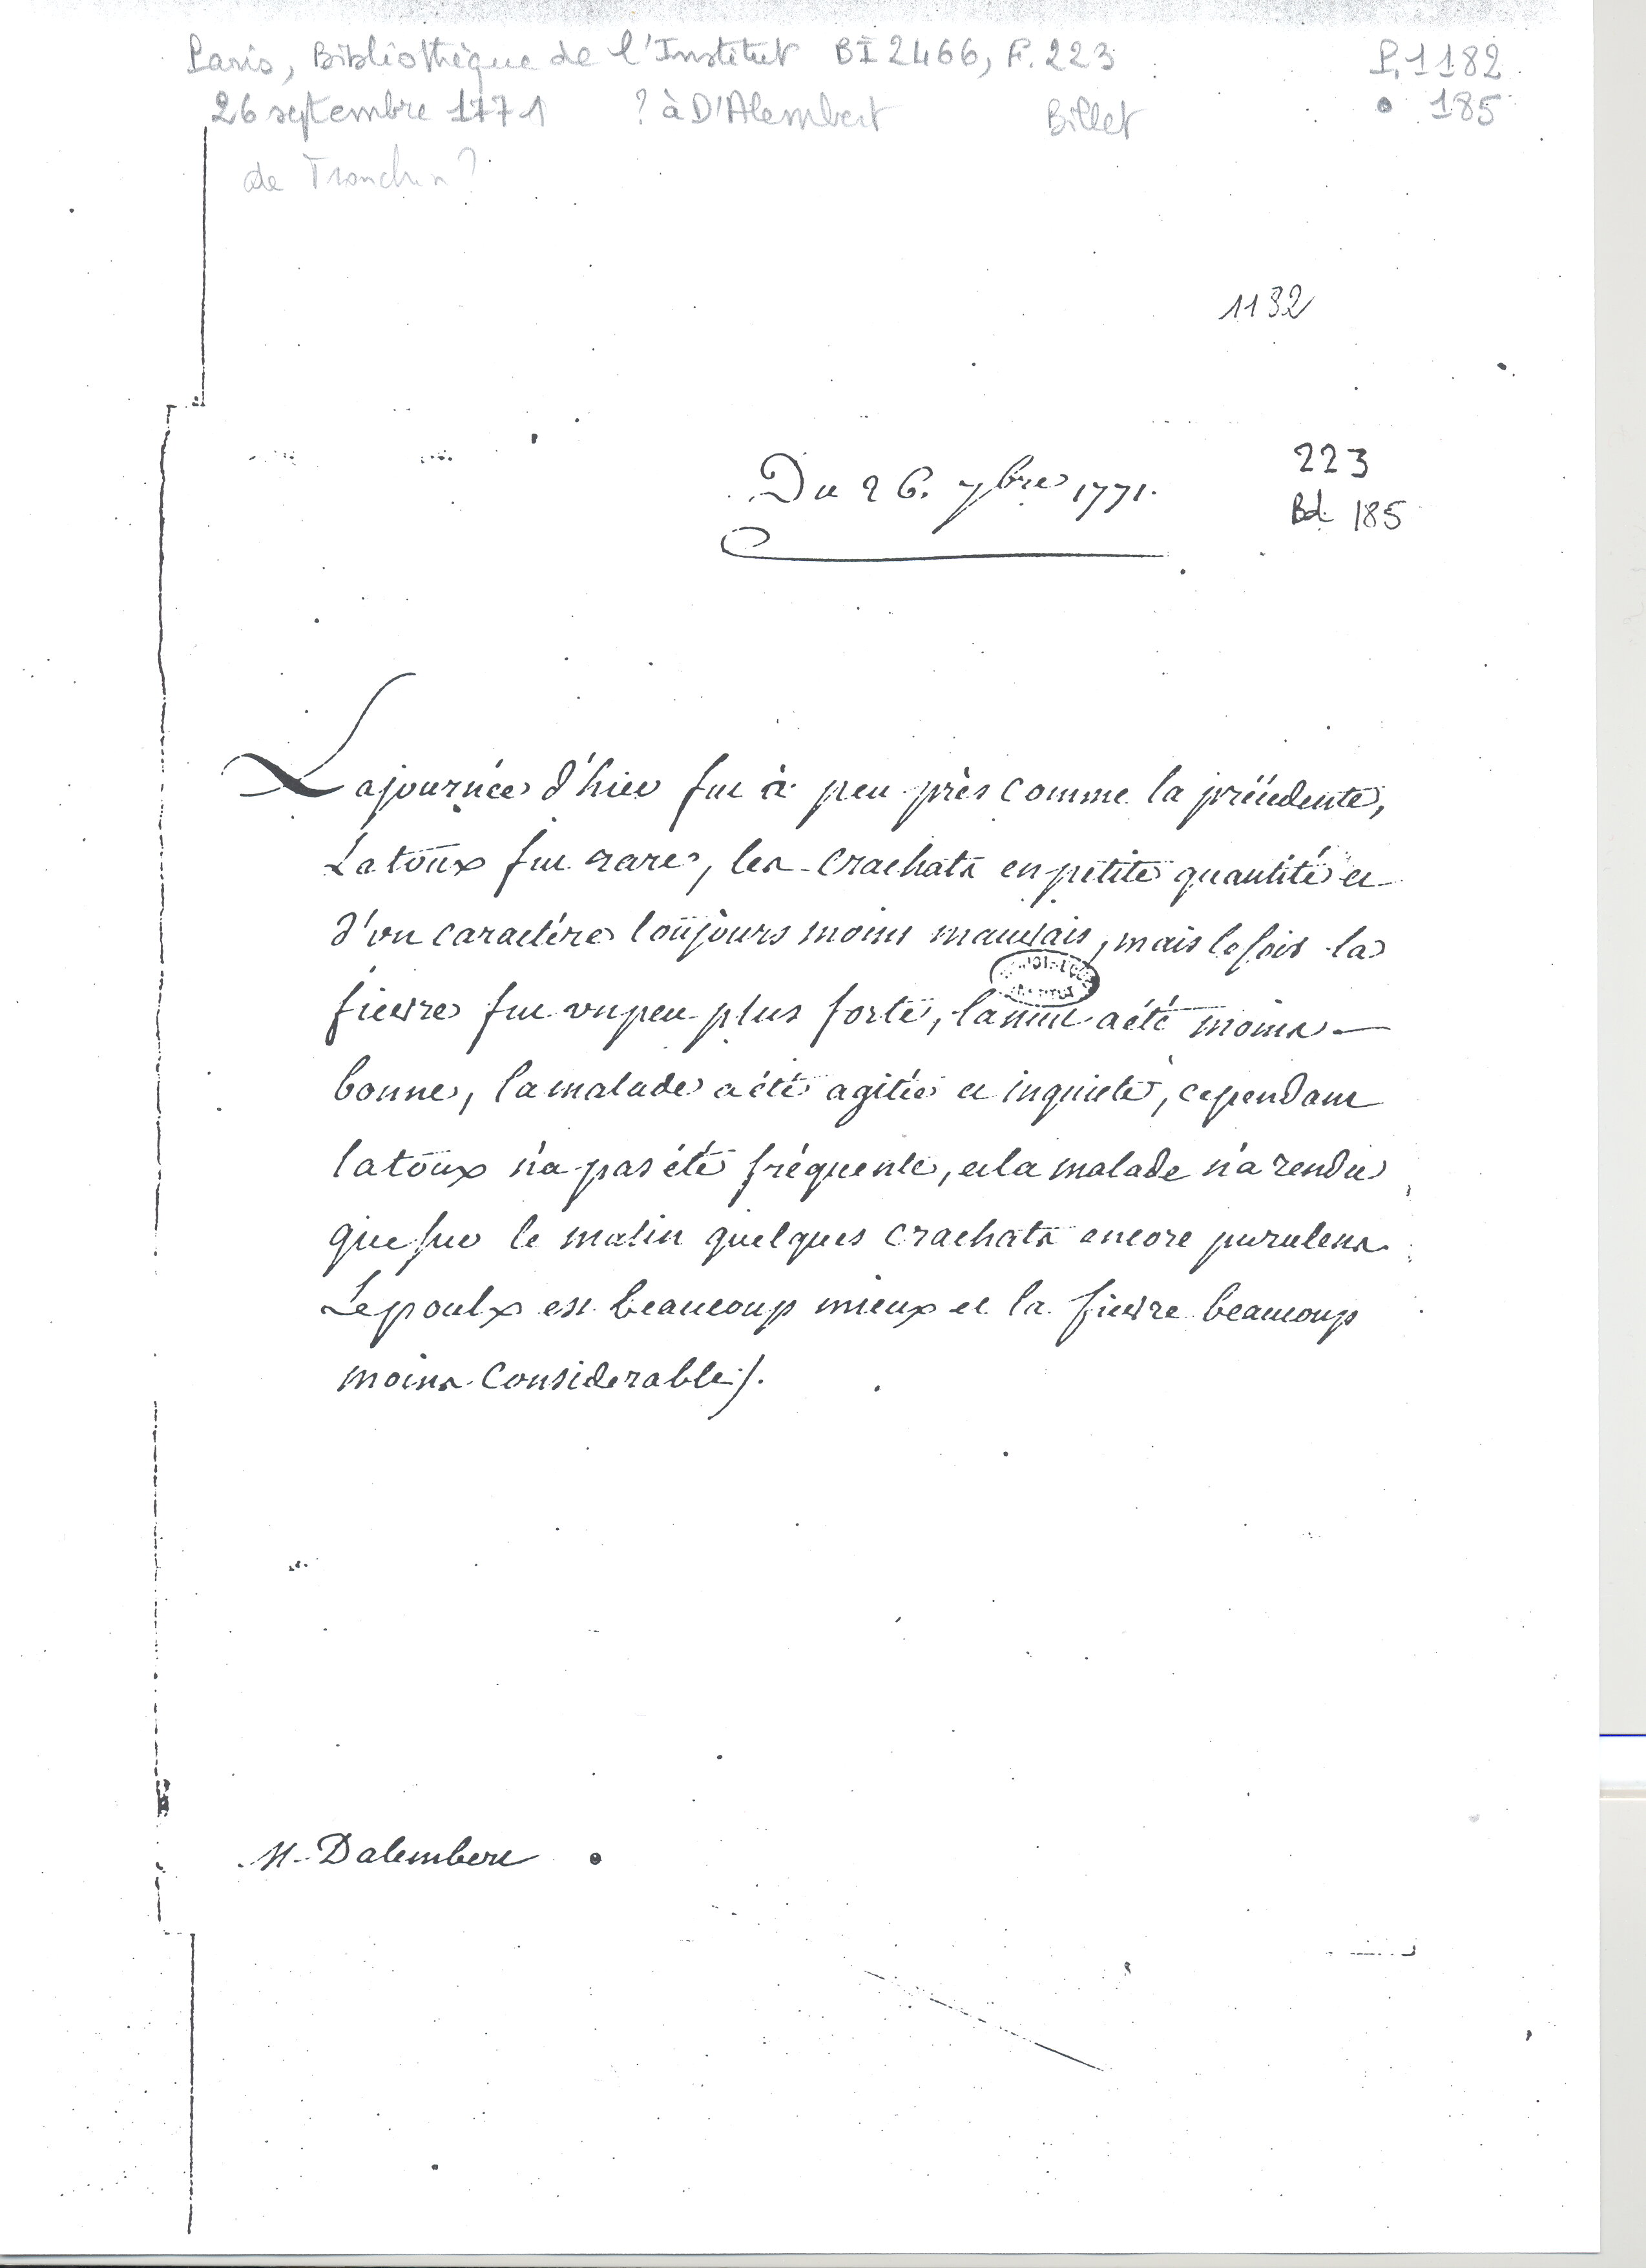 Paris, Bibliothèque de l'Institut BI 2466, F. 223 P. 1182
26 septembre 1771 ? à D'Alembert Billet 185
de Tronchin?
1132
Du 26. 7bre 1771. 223
Bd 185
La journée d'hier fut à peu près comme la précedente,
La toux fut rare, les crachats en petite quantité et
d'un caractère toujours moins mauvais, mais le soir la
fievre fut un peu plus forte, la nuit a été moins
bonne, la malade a été agitée et inquiete, cependant
la toux n'a pas été fréquente, et la malade n'a rendu
que sur le matin quelques crachats encore purulens.
Le poulx est beaucoup mieux et la fievre beaucoup
moins considerable/.
M. Dalembert